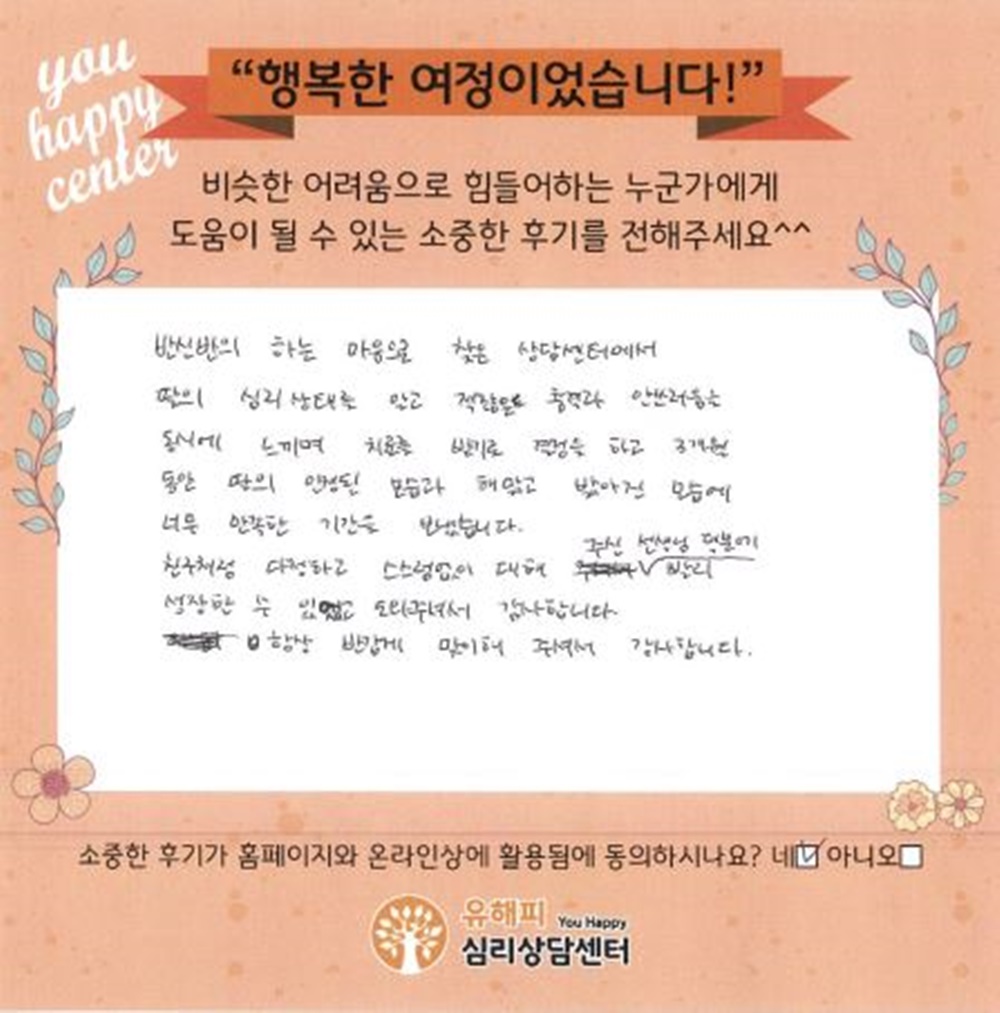 you
happy
center
“행복한 여정이었습니다!”
비슷한 어려움으로 힘들어하는 누군가에게
도움이 될 수 있는 소중한 후기를 전해주세요^^
반신반의 하는 마음으로 찾은 상담센터에서
딸의 심리상태를 안고 적잖은 충격과 안쓰러움을
동시에 느끼며 치료를 받기로 결정을 하고 3개월
동안 딸의 안정된 모습과 해맑고 밝아진 모습에
너무 만족한 기간을 보냈습니다.
친구처럼 다정하고 스스럼없이 대해 주신 선생님 덕분에 빨리
성장할 수 있었고 도와주셔서 감사합니다
항상 반갑게 맞이해 주셔서 감사합니다.
소중한 후기가 홈페이지와 온라인상에 활용됨에 동의하시나요? 네 아니오
유해피 You Happy
심리상담센터